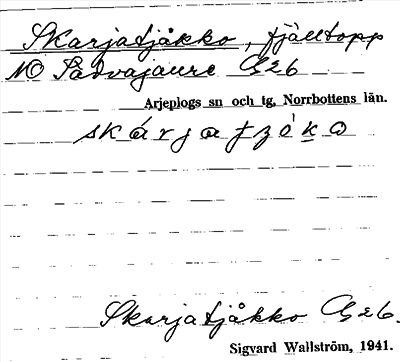 Skarjatjåkko, fjälltopp
NO Sädvajaure G26
Arjeplogs sn och tg, Norrbottens län.
Skarjatjåkko G26.
Sigvard Wallström, 1941.